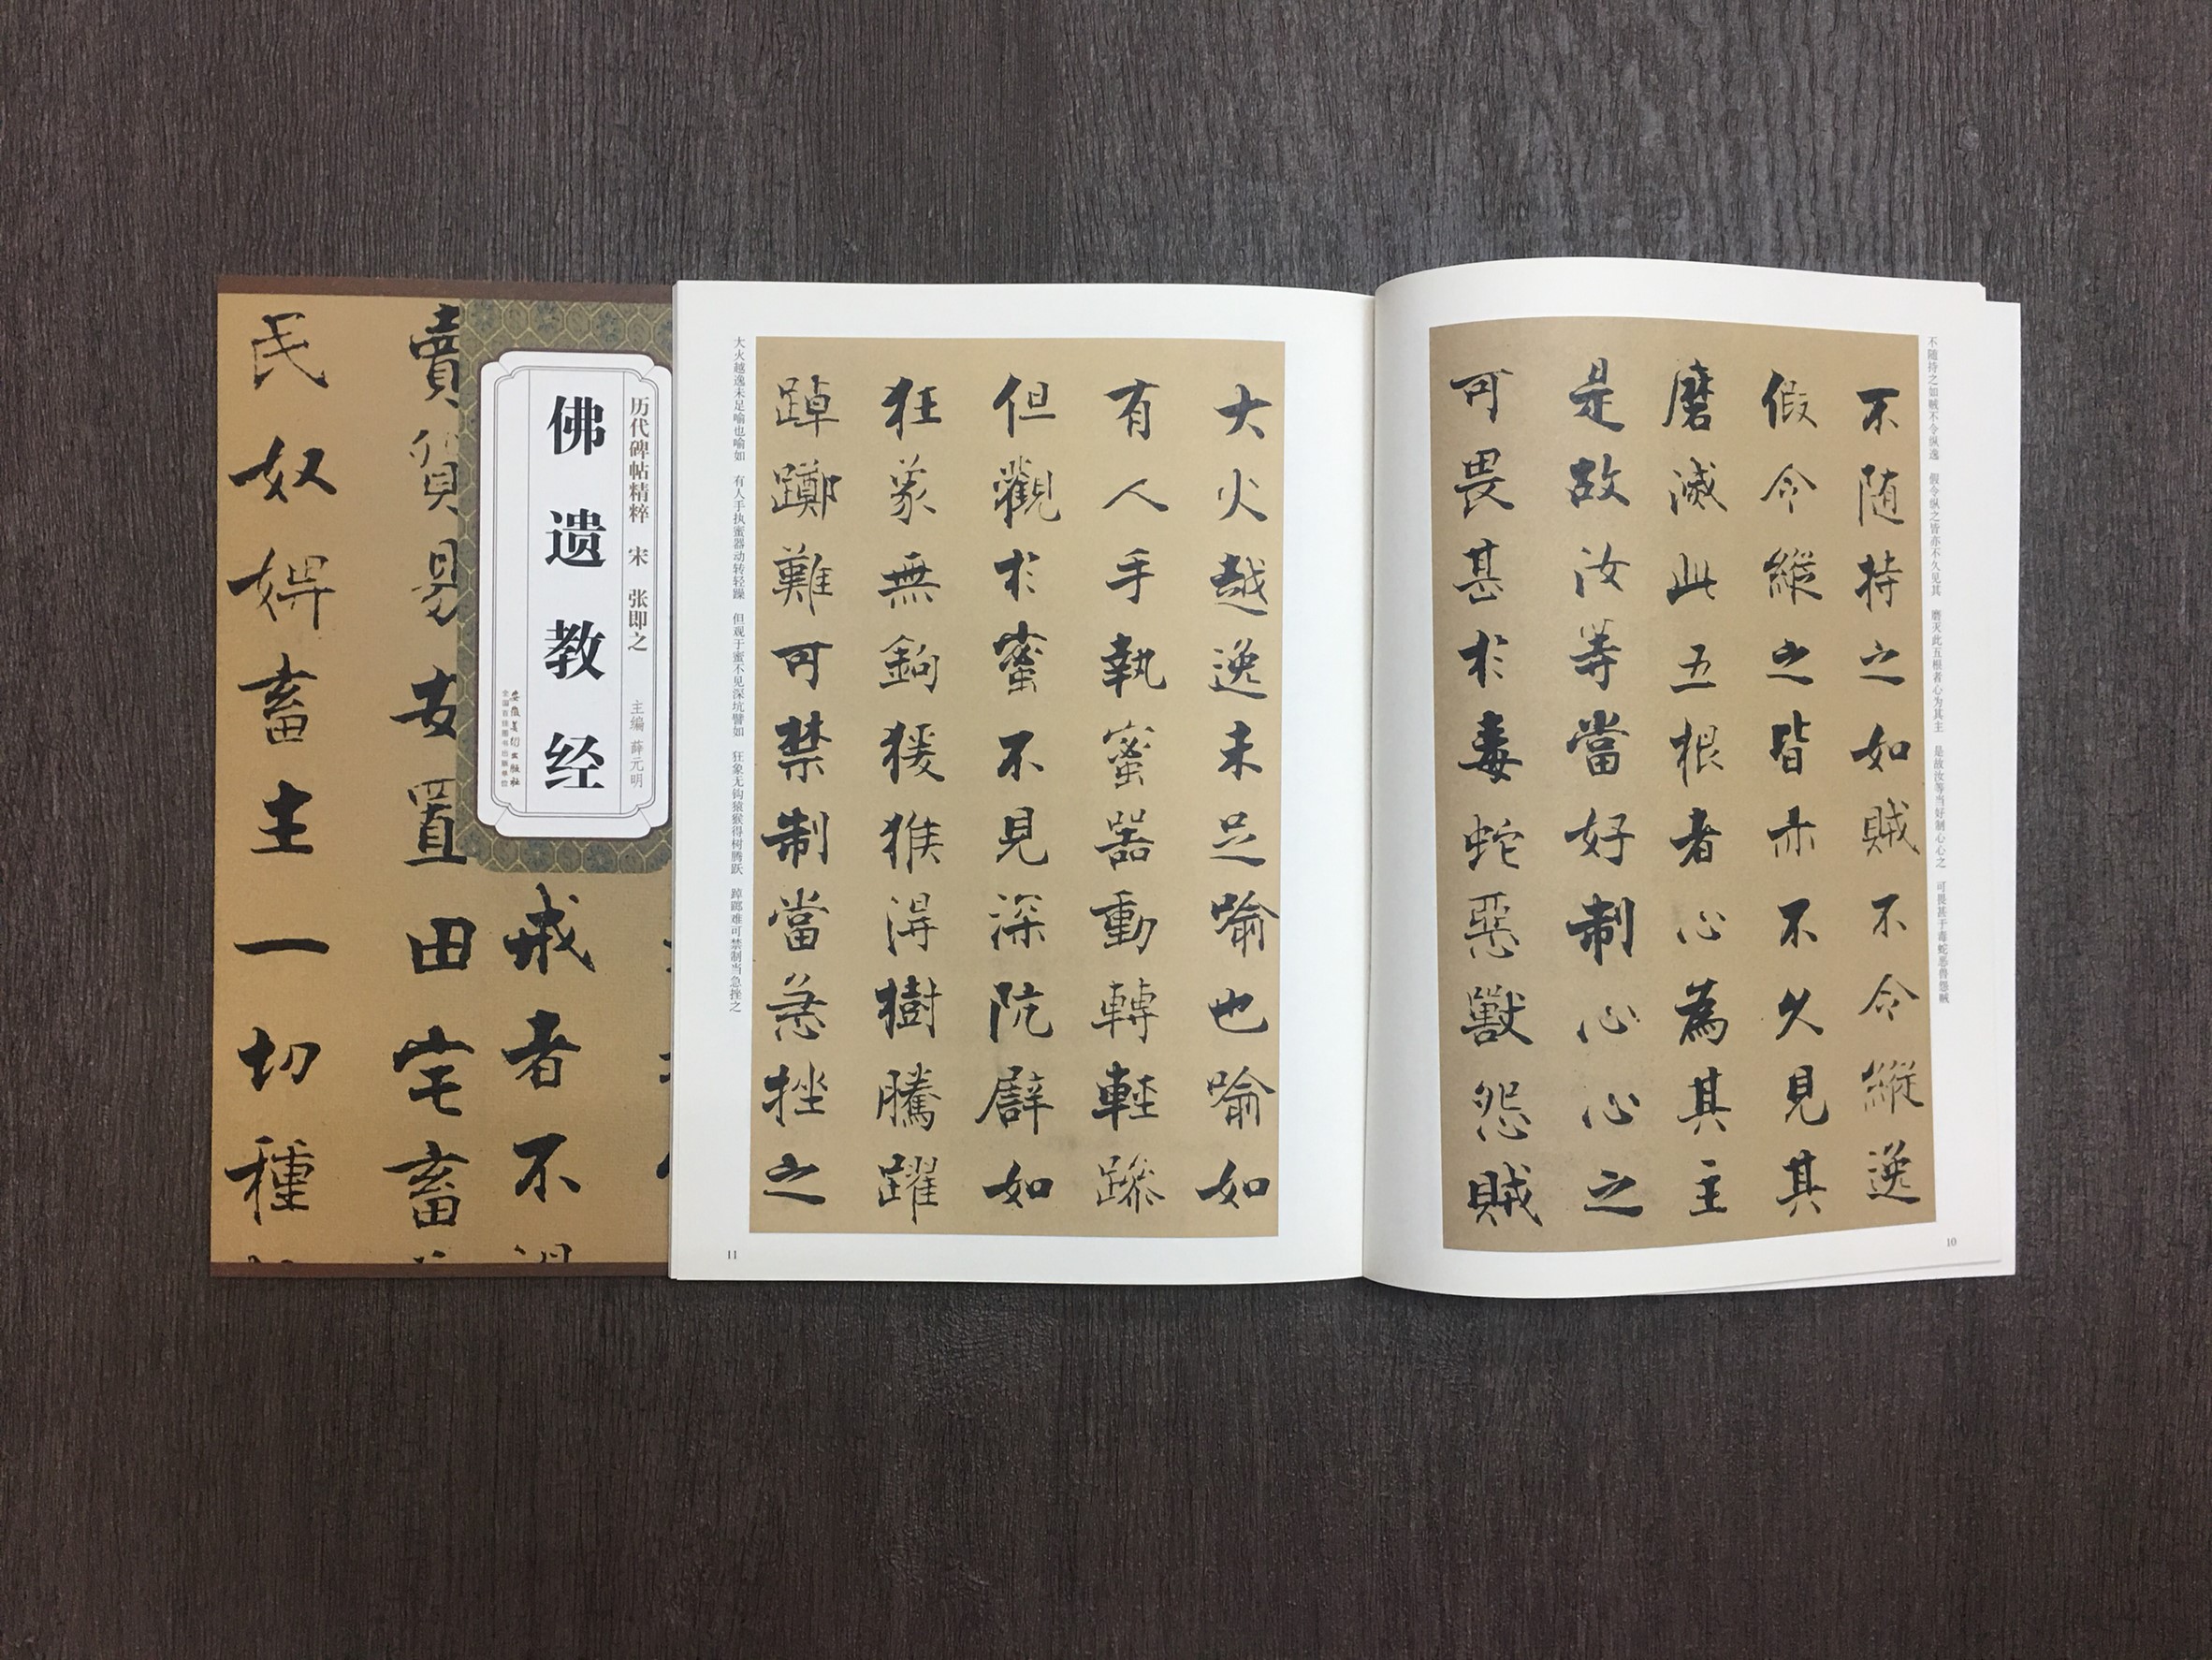 历代碑帖精粹 宋 张即之 主编 薛元明
佛遗教经
安徽美术出版社
全国百佳图书出版单位
戒者不
賣貿易安置田宅畜
民奴婢畜主一切種
不随持之如贼不令纵逸 假令纵之皆亦不久见其 磨灭此五根者心为其主 是故汝等当好制心心之 可畏甚于毒蛇恶兽怨贼
不随持之如賊不令縱逸
假令縱之皆亦不久見其
磨滅此五根者心為其主
是故汝等當好制心心之
可畏甚於毒蛇惡獸怨賊
10
大火越逸未足喻也喻如
有人手執蜜器動轉輕躁
但觀於蜜不見深阬譬如
狂象無鉤猨猴得樹騰躍
踔躑難可禁制當急挫之
大火越逸未足喻也喻如 有人手执蜜器动转轻躁 但观于蜜不见深坑譬如 狂象无钩猿猴得树腾跃 踔踯难可禁制当急挫之
11